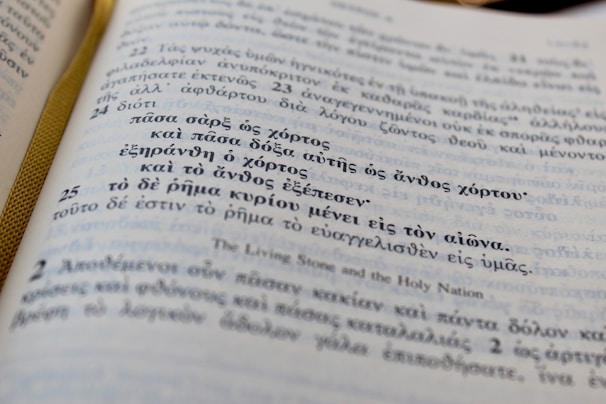 22 Τὰς ψυχὰς ὑμῶν ἡγνικότες ἐν τῇ ὑπακοῇ τῆς ἀληθείας εἰς
φιλαδελφίαν ἀνυπόκριτον ἐκ καθαρᾶς καρδίας ἀλλήλου
ἀγαπήσατε ἐκτενῶς 23 ἀναγεγεννημένοι οὐκ ἐκ σπορᾶς φθαρ
τῆς ἀλλ' ἀφθάρτου διὰ λόγου ζῶντος θεοῦ καὶ μένοντο
24 διότι
πᾶσα σὰρξ ὡς χόρτος
καὶ πᾶσα δόξα αὐτῆς ὡς ἄνθος χόρτου·
ἐξηράνθη ὁ χόρτος
καὶ τὸ ἄνθος ἐξέπεσεν·
25 τὸ δὲ ῥῆμα κυρίου μένει εἰς τὸν αἰῶνα.
τοῦτο δέ ἐστιν τὸ ῥῆμα τὸ εὐαγγελισθὲν εἰς ὑμᾶς.
The Living Stone and the Holy Nation
2 Ἀποθέμενοι οὖν πᾶσαν κακίαν καὶ πάντα δόλον κα
κρίσεις καὶ φθόνους καὶ πάσας καταλαλιάς 2 ὡς ἀρτιγ
βρέφη τὸ λογικὸν ἄδολον γάλα ἐπιποθήσατε, ἵνα ἐν